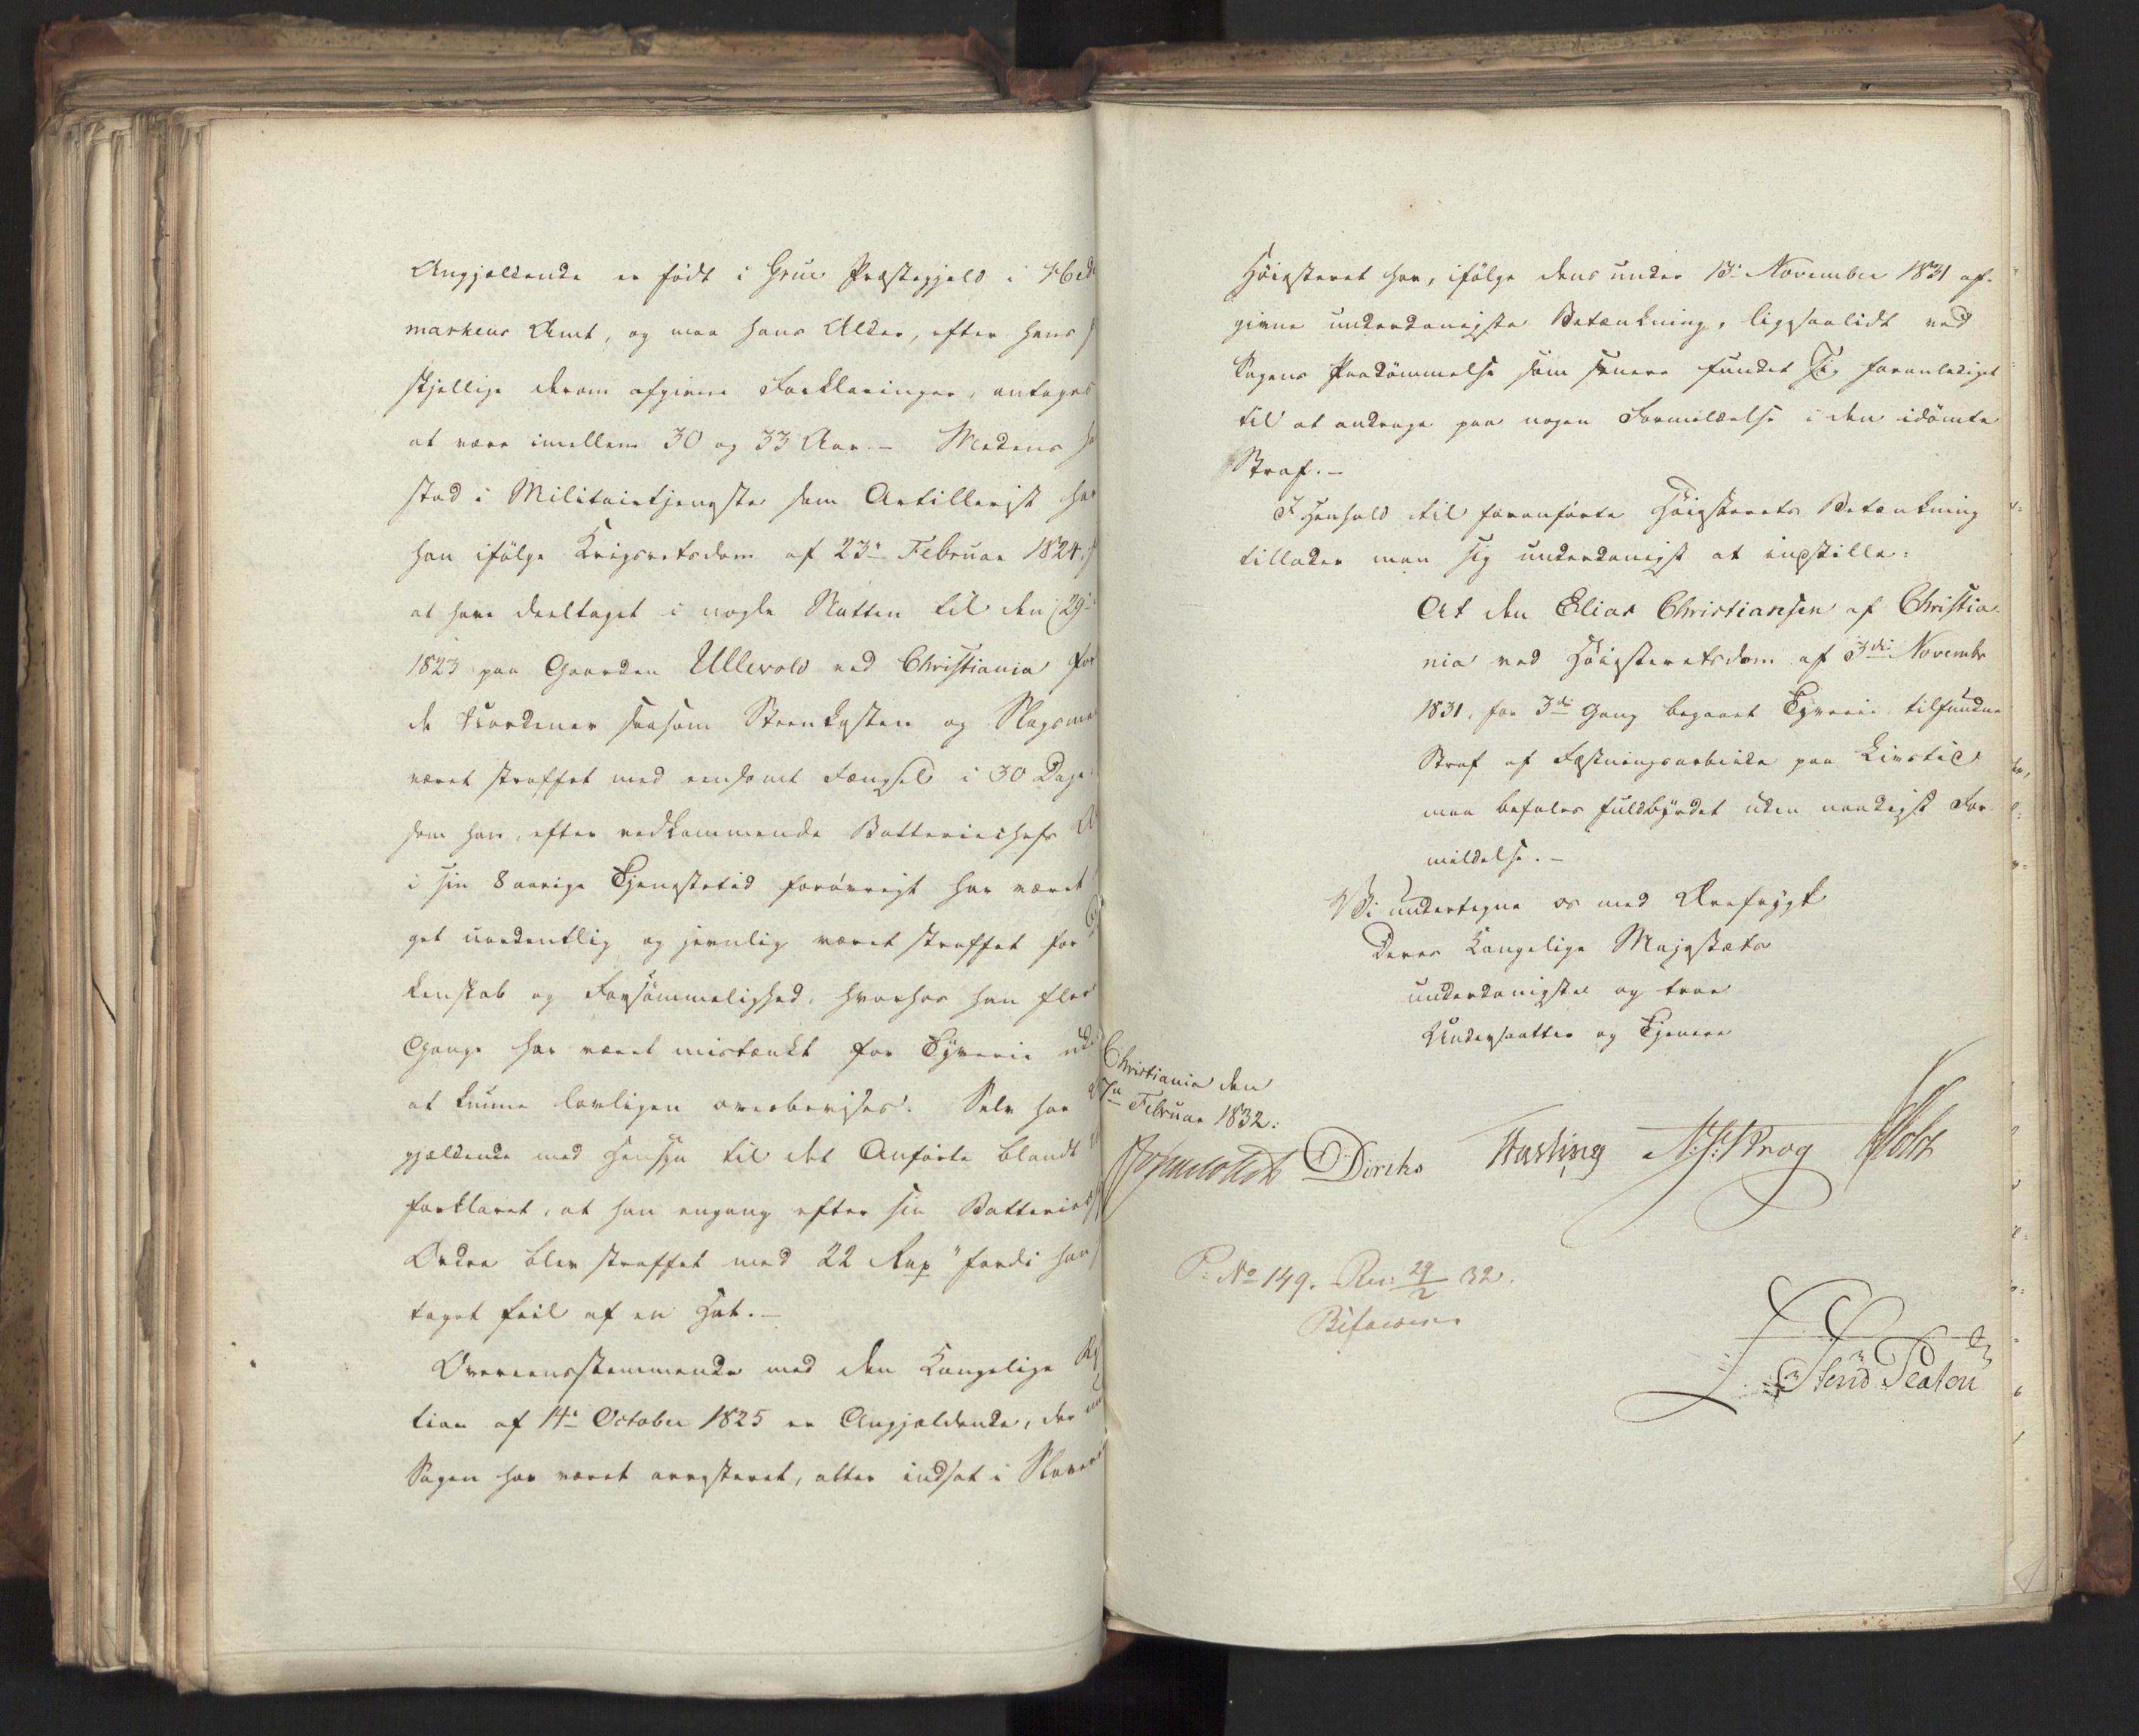 Angjældende er født i Grue Præstegjeld i Hede
markens Amt, og maa hans Alder, efter hans
skjellige derom afgivne Forklaringer, antages
at være imellem 30 og 33 Aar. - Medens
stod i Militairtjeneste som Artillerist har
han ifølge Krigsretsdom af 23de Februar 1824,
at have deeltaget i nogle Natten til den 29
1823 paa Gaarden Ullevold ved Christiania for
de Uordener saasom Steenkasten og Slagsmaal
været straffet med eensomt Fængsel i 30 Dage,
som han, efter vedkommende Batteriechefs
i sin 8 aarige Tjenestetid forøvrigt har været
get uordentlig og jevnlig været straffet for
kenskab og Forsømmelighed, hvorhos han flere
Gange har været mistænkt for Tyverie uden
at kunne lovligen overbevises. Selv har
gjældende med Hensyn til det Anførte blandt
forklaret, at han engang efter sin Batteries
Ordre blev straffet med 22 Rap "fordi han
taget feil af en Hat. -
Overeensstemmende med den Kongelige
tion af 14de October 1825 er Angjældende, der
Sagen har været arresteret, atter indsat i Slaverie
Høiesteret har, ifølge dens under 13de November 1831 af-
givne underdanigste Betænkning, ligesaalidt ved
Sagens Paadømmelse som senere fundet Sig foranlediget
til at andrage paa nogen Formildelse i den idømte
Straf. -
I Henhold til foranførte Høiesterets Betænkning
tillader man sig underdanigst at indstille:
At den Elias Christiansen af Christia
nia ved Høiesteretsdom af 3die Novembr
1831, for 3die Gang begaaet Tyverie tilfundne
Straf af Fæstningsarbeide paa Livstid
maa befales fuldbyrdet uden naadigst For
mildelse. -
Vi undertegne os med Ærefrygt
Deres Kongelige Majestæts
underdanigste og troe
Undersaatter og Tjenere
Christiania den
7de Februar 1832:
Diriks
Fasting
N: J: Krog
Holst
P: No 149. Res: 29/2 32.
Bifaldes